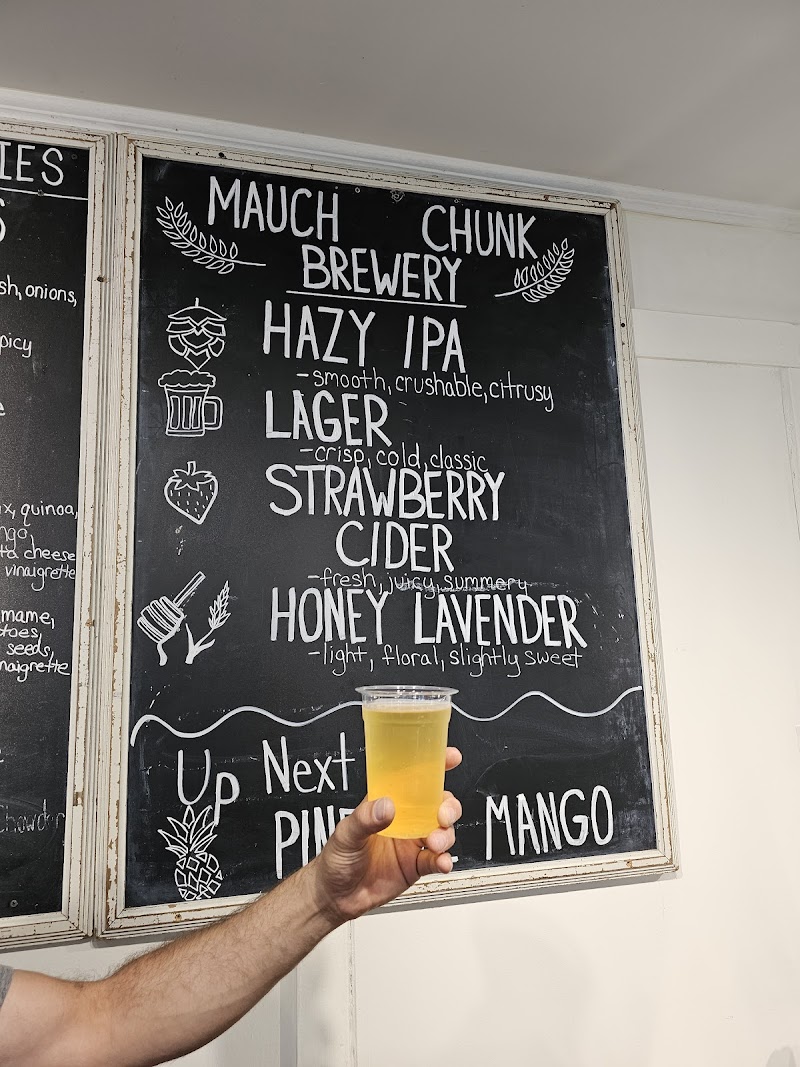 IES
S
sh, onions,
picy
e
x, quinoa,
ngo,
ta cheese
vinaigrette
mame,
toes,
seeds,
naigrette
Chowder
MAUCH CHUNK
BREWERY
HAZY IPA
-smooth, crushable, citrusy
LAGER
-crisp, cold, classic
STRAWBERRY
CIDER
-fresh, juicy, summery
HONEY LAVENDER
-light, floral, slightly sweet
Up Next
PIN MANGO